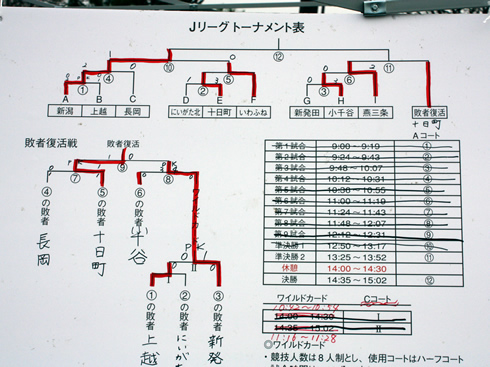 Jリーグ トーナメント表
⑫
⑩
⑪
① ④ ② ⑤ ③ ⑥
A B C D E F G H I
新潟 上越 長岡 にいがた北 十日町 いわふね 新発田 小千谷 燕三条 敗者復活
十日町
Aコート
敗者復活戦 敗者復活
⑨
⑦ ⑧
④の敗者 ⑤の敗者 ⑥の敗者
長岡 十日町 小千谷
P K
I II
①の敗者 ②の敗者 ③の敗者
上越 にいがた 新発
第1試合 9:00~9:19 ①
第2試合 9:24~9:43 ②
第3試合 9:48~10:07 ③
第4試合 10:12~10:31 ④
第5試合 10:36~10:55 ⑤
第6試合 11:00~11:19 ⑥
第7試合 11:24~11:43 ⑦
第8試合 11:48~12:07 ⑧
第9試合 12:12~12:31 ⑨
準決勝1 12:50~13:17 ⑩
準決勝2 13:25~13:52 ⑪
休憩 14:00~14:30
決勝 14:35~15:02 ⑫
ワイルドカード Cコート
10:42~10:54
14:00~14:30 I
14:35~15:02 II
11:16~11:28
◎ワイルドカード
・競技人数は8人制とし、使用コートはハーフコート